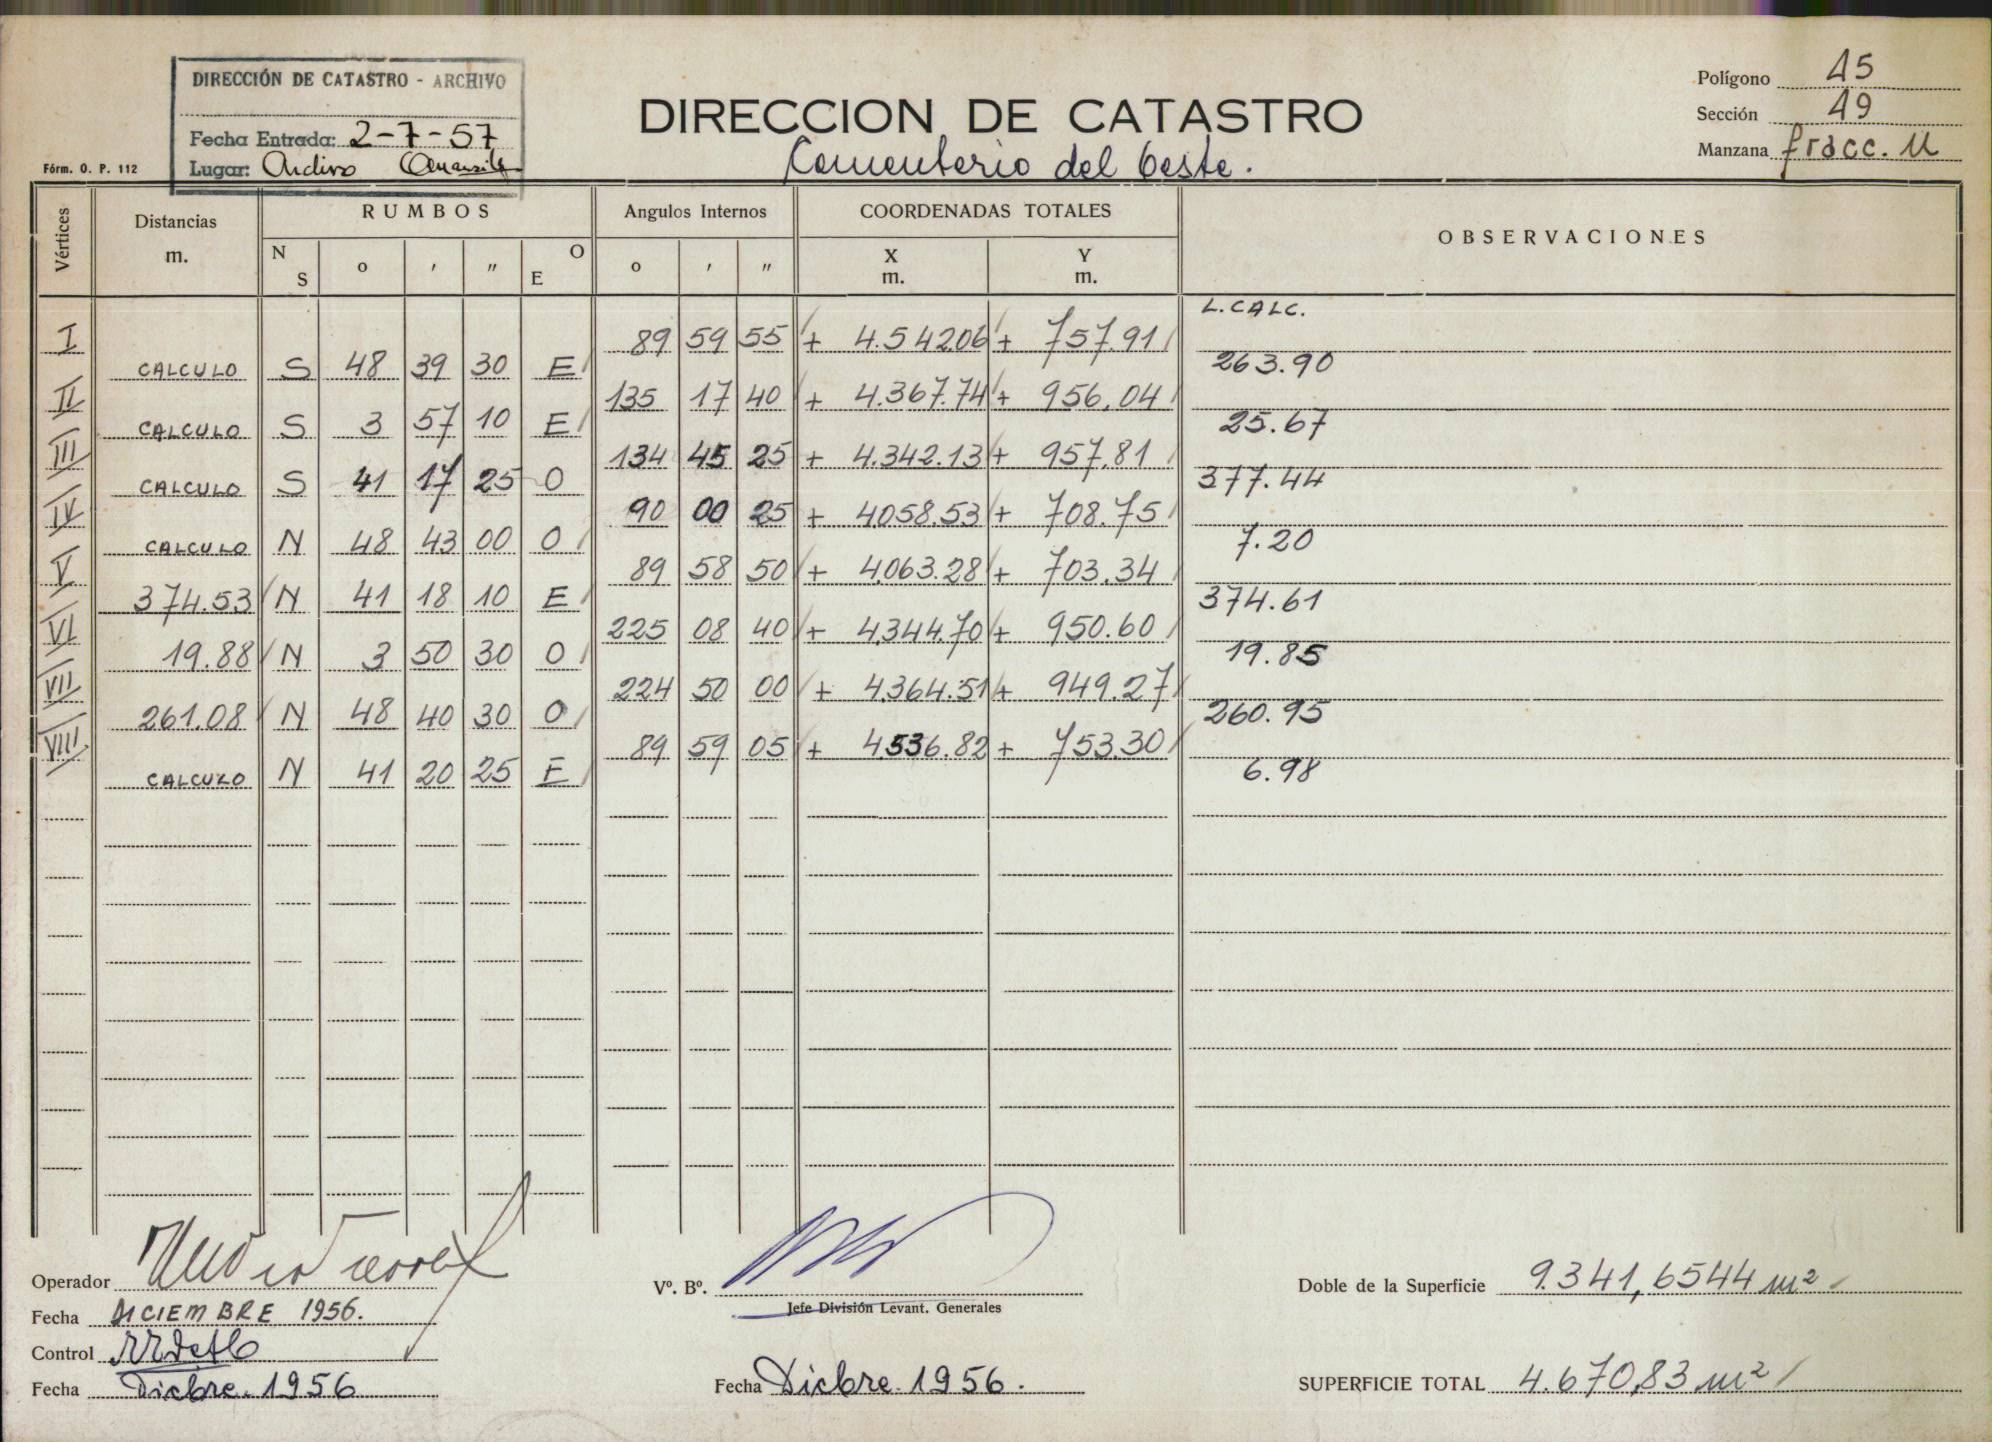 DIRECCIÓN DE CATASTRO - ARCHIVO
Fecha Entrada: 2-7-57
Lugar:
Fórm. O. P. 112
DIRECCION DE CATASTRO
Cementerio del Oeste.
Polígono 45
Sección 49
Manzana fracc. U
Vértices Distancias m. RUMBOS Angulos Internos COORDENADAS TOTALES OBSERVACIONES
N S o ' " O E o ' " X m. Y m.
L.CALC.
I 89 59 55 + 4.542.06 + 757.91
CALCULO S 48 39 30 E 263.90
II 135 17 40 + 4.367.74 + 956.04
CALCULO S 3 57 10 E 25.67
III 134 45 25 + 4.342.13 + 957.81
CALCULO S 41 17 25 O 377.44
IV 90 00 25 + 4058.53 + 708.75
CALCULO N 48 43 00 O 7.20
V 89 58 50 + 4.063.28 + 703.34
374.53 N 41 18 10 E 374.61
VI 225 08 40 + 4.344.70 + 950.60
19.88 N 3 50 30 O 19.85
VII 224 50 00 + 4.364.51 + 949.27
261.08 N 48 40 30 O 260.95
VIII 89 59 05 + 4.536.82 + 753.30
CALCULO N 41 20 25 E 6.98
Operador
Fecha DICIEMBRE 1956.
Control
Fecha Dicbre. 1956
Vº. Bº.
Jefe División Levant. Generales
Fecha Dicbre. 1956.
Doble de la Superficie 9.341,6544 m²
SUPERFICIE TOTAL 4.670,83 m²